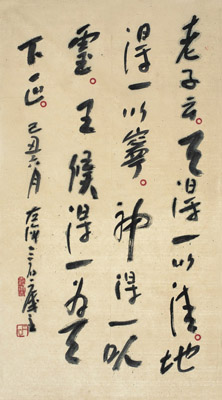 老子云天得一以清地
得一以寧神得一以
靈王侯得一為天
下正己丑六月